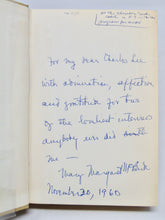 For my dear Charles Lee
with admiration, affection
and gratitude for two
of the loveliest interviews
anybody ever did
me —
Mary Margaret McBride
November 20, 1960